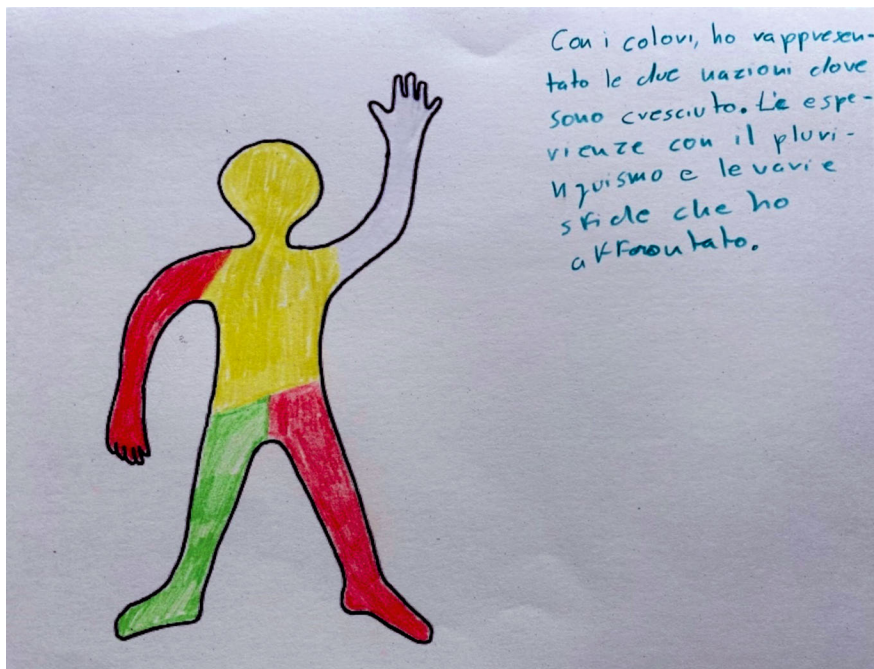 Con i colori, ho rappresen-
tato le due nazioni dove
sono cresciuto. Le espe-
rienze con il pluri-
nguismo e le varie
sfide che ho
affrontato.